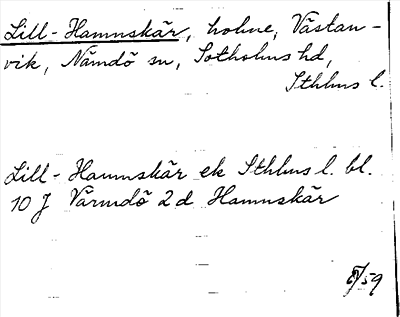 Lill-Hamnskär, holme, Västan-
vik, Nämdö sn, Sotholms hd,
Sthlms l.
Lill-Hamnskär ek Sthlms l. bl.
10 J Värmdö 2 d Hamnskär
/59